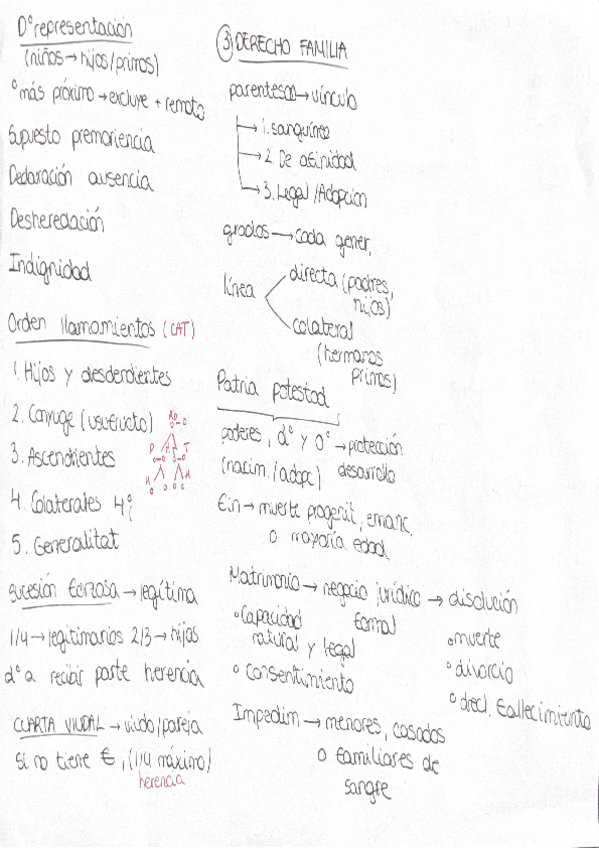 Dº representación
(niños → hijos/primos)
º más próximo → excluye + remoto
Supuesto premoriencia
Declaración ausencia
Desheredación
Indignidad
Orden llamamientos (CAT)
1. Hijos y desdendientes
2. Conyuge (usufructo)
3. Ascendientes
4. Colaterales 4º
5. Generalitat
Sucesión forzosa → legítima
1/4 → legitimarios 2/3 → hijos
dº a recibir parte herencia
CUARTA VIUDAL → viudo/pareja
si no tiene €, (1/4 máximo)
herencia
③ DERECHO FAMILIA
parentesco → vínculo
→ 1. sanguíneo
→ 2 De afinidad
→ 3. Legal /Adopcion
grados → cada gener.
línea
directa (padres,
hijos)
colateral
(hermanos
primos)
Patria potestad
poderes, dº y oº → protección
(nacim./adopc) desarrollo
Fin → muerte progenit., emanc.
o mayoría edad
Matrimonio → negocio jurídico → disolución
formal
º Capacidad
natural y legal
º Consentimiento
º muerte
º divorcio
º decl. fallecimiento
Impedim → menores, casados
o familiares de
sangre